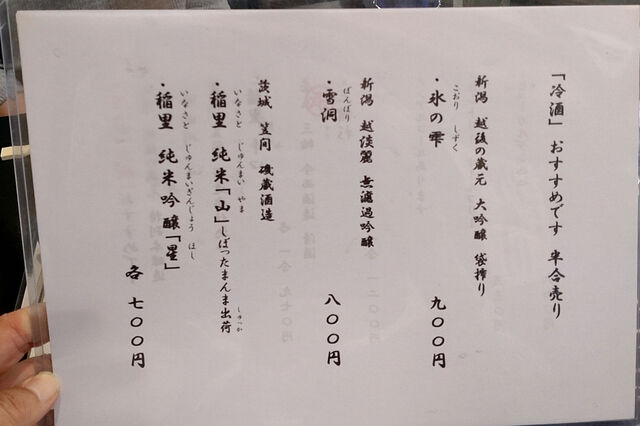 「冷酒」おすすめです 半合売り
新潟 越後の蔵元 大吟醸 袋搾り
・氷の雫 九〇〇円
こおり しずく
新潟 越淡麗 無濾過吟醸
・雪洞 八〇〇円
ぼんぼり
茨城 笠間 磯蔵酒造
・稲里 純米「山」しぼったまんま出荷
いなさと じゅんまい やま しゅっか
・稲里 純米吟醸「星」
いなさと じゅんまいぎんじょう ほし
各 七〇〇円